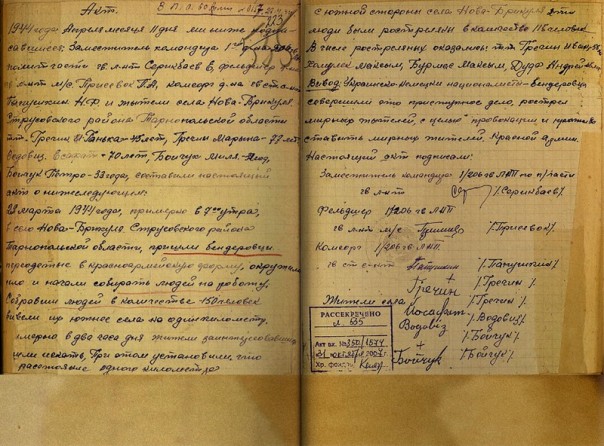 Акт.
1944 года Апреля месяца 11 дня мы ниже подпи-
савшиеся: Заместитель командира
политчасти гв. л-нт Сарикбаев, фельдшер
гв. л-нт м/с Присевок П.А, комсорг д-на гв ст. л-нт
Панушкин Н.Ф и жители села Нова-Брикуля
Струсовского района Тарнопольской области
Гречин Марина-77 лет
Ведовиз 70 лет, Бойчук Миля
Бойчук Петро-38 года, составили настоящий
акт о нижеследующем:
28 марта 1944 года, примерно в 7 утра,
в село Нова-Брикуля Струсовского района
Тарнопольской области, пришли бендеровцы
переодетые в красноармейскую форму, окружили
село и начали собирать людей на работу.
Собравши людей в количестве 150 человек
вывели их южнее села на один километр.
в два часа дня жители заинтересовавшись
пошли искать. При этом установили, что
расстояние одного километра
с южной стороны села Нова-Брикуля эти
люди были расстреляны в количестве человек
В числе расстрелянных оказались: т.т. Гречин
Максим, Бурлас Максим, Дуда Андрей
Вывод: Украинско-немецкие националисты-бендеровцы
совершили это преступное дело, расстрел
мирных жителей, с целью провокации и противопо-
ставить мирных жителей, Красной армии.
Настоящий акт подписали:
Заместитель командира 1/206 гв ЛАП по п/части
гв. л-нт /Сарикбаев/
Фельдшер 1/206 гв ЛАП
гв. л-нт м/с /Присевок/
Комсорг 1/206 гв ЛАП.
гв ст. л-нт /Панушкин/
Жители села:
Гречин /Гречин/
/Гречин/
Ведовиз /Ведовиз/
/Бойчук/
Бойчук /Бойчук/
РАССЕКРЕЧЕНО
Акт вх. №
2007 г.
Хр. фонда